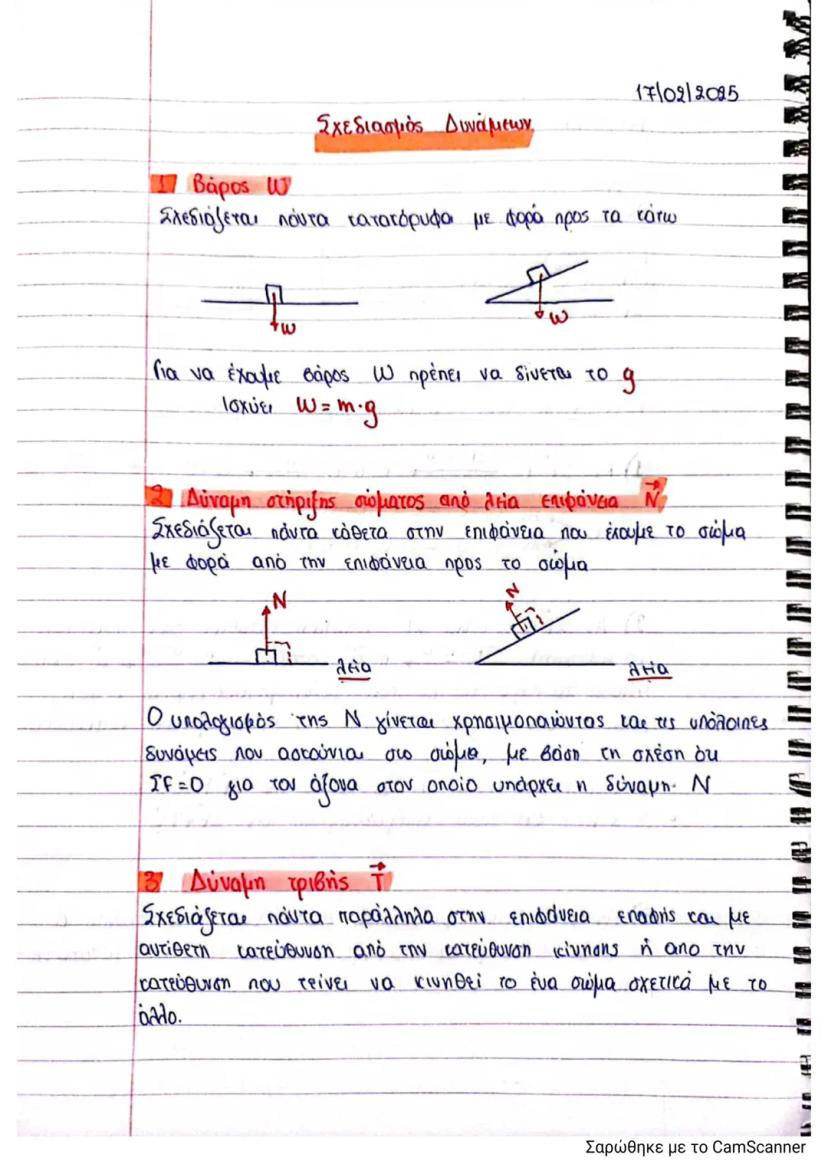 17/02/2025
Σχεδιασμός Δυνάμεων
1 Βάρος W
Σχεδιάζεται πάντα κατακόρυφα με φορά προς τα κάτω
W
W
Για να έχουμε βάρος W πρέπει να δίνεται το g
Ισχύει W = m·g
2 Δύναμη στήριξης σώματος από λεία επιφάνεια N
Σχεδιάζεται πάντα κάθετα στην επιφάνεια που έχουμε το σώμα
με φορά από την επιφάνεια προς το σώμα
N
N
λεία
λεία
Ο υπολογισμός της N γίνεται χρησιμοποιώντας και τις υπόλοιπες
δυνάμεις που ασκούνται στο σώμα, με βάση τη σχέση ότι
ΣF=0 για τον άξονα στον οποίο υπάρχει η δύναμη N
3 Δύναμη τριβής T
Σχεδιάζεται πάντα παράλληλα στην επιφάνεια επαφής και με
αντίθετη κατεύθυνση από την κατεύθυνση κίνησης ή απο την
κατεύθυνση που τείνει να κινηθεί το ένα σώμα σχετικά με το
άλλο.
Σαρώθηκε με το CamScanner